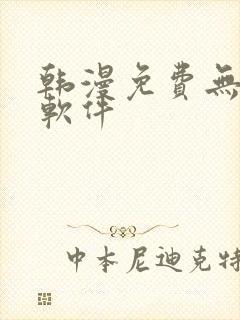 韩漫免費無
軟件
中本尼迪克特